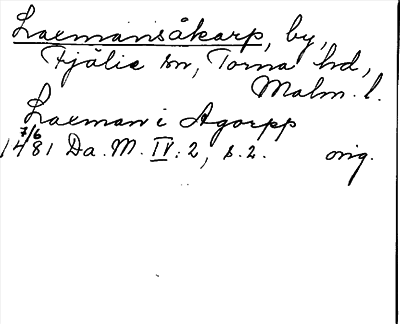 Laxmansåkarp, by,
Fjälie sn, Torna hd,
Malm. l.
Laxman i Agorpp
7/6
1481 Da. M. IV: 2, s. 2. orig.